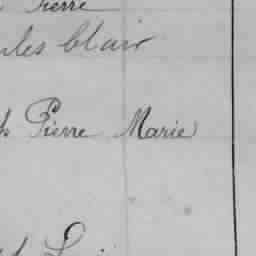 Pierre
les Clair
h Pierre Marie